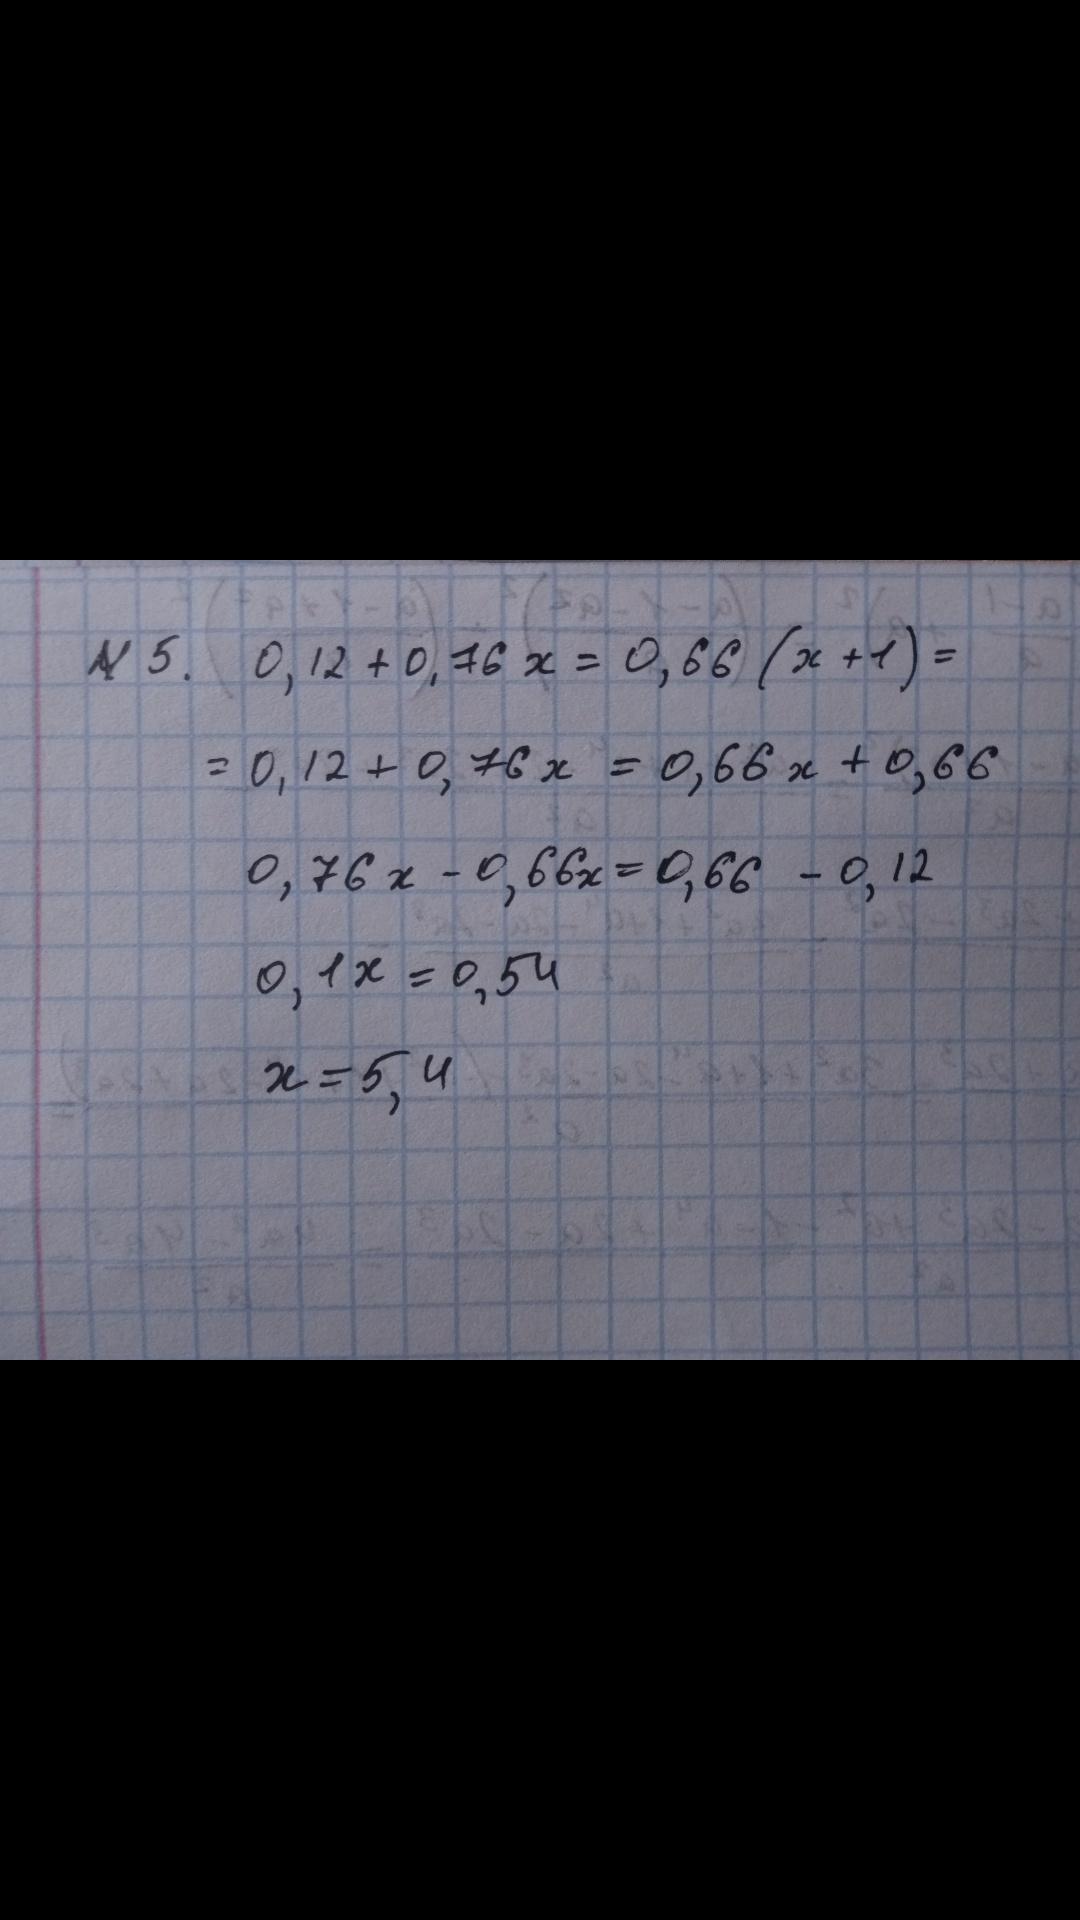 N 5. 0,12 + 0,76 x = 0,66 (x + 1) =
= 0,12 + 0,76 x = 0,66 x + 0,66
0,76 x - 0,66x = 0,66 - 0,12
0,1x = 0,54
x = 5,4